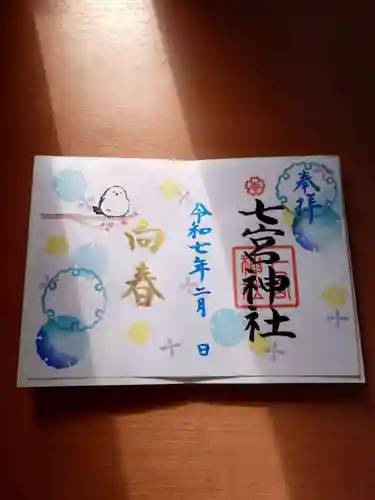 奉拝
七宮神社
令和七年二月 日
向春